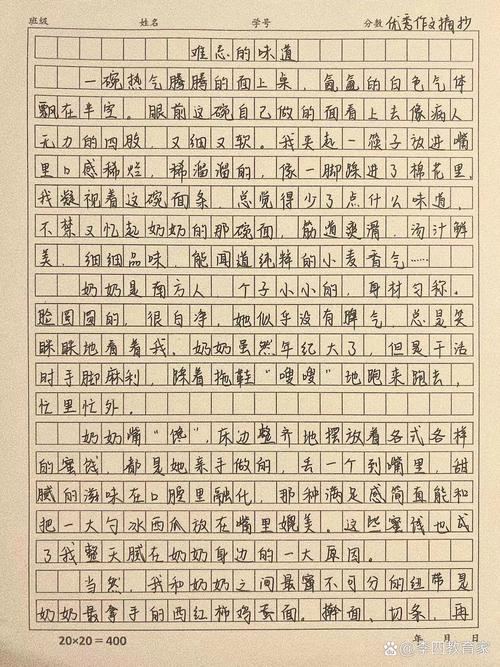 班级 姓名 学号 分数 优秀作文摘抄
难忘的味道
一碗热气腾腾的面上桌，氤氲的白色气体
飘在半空。眼前这碗自己做的面看上去像病人
无力的四肢，又细又软。我夹起一筷子放进嘴
里口感稀烂，稀溜溜的，像一脚踩进了棉花里。
我凝视着这碗面条，总觉得少了点什么味道，
不禁又忆起奶奶的那碗面，筋道爽滑，汤汁鲜
美，细细品味，能闻道纯粹的小麦香气……
奶奶是南方人 个子小小的，身材匀称。
脸圆圆的，很白净，她似乎没有脾气，总是笑
眯眯地看着我。奶奶虽然年纪大了，但是干活
时手脚麻利，踩着拖鞋“嗖嗖”地跑来跑去，
忙里忙外。
奶奶嘴“馋”，床边整齐地摆放着各式各样
的蜜饯，都是她亲手做的，丢一个到嘴里，甜
腻的滋味在口腔里融化，那种满足感简直能和
把一大勺冰西瓜放在嘴里媲美。这些蜜饯也成
了我整天腻在奶奶身边的一大原因。
当然，我和奶奶之间最密不可分的纽带是
奶奶最拿手的西红柿鸡蛋面。擀面、切条，再
20×20=400 年 月 日
李四教育家